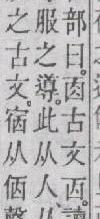 部曰。㐁古文㐁。讀
服之導。此从人
之古文。宿从㑉聲